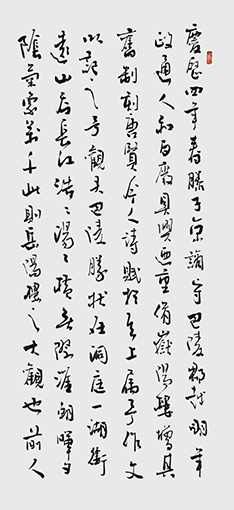 慶曆四年春滕子京謫守巴陵郡越明年
政通人和百廢具興迺重脩嶽陽樓增其
舊制刻唐賢今人詩賦於其上屬予作文
以記之予觀夫巴陵勝狀在洞庭一湖銜
遠山吞長江浩〻湯〻橫無際涯朝暉夕
陰氣象萬千此則岳陽樓之大觀也前人